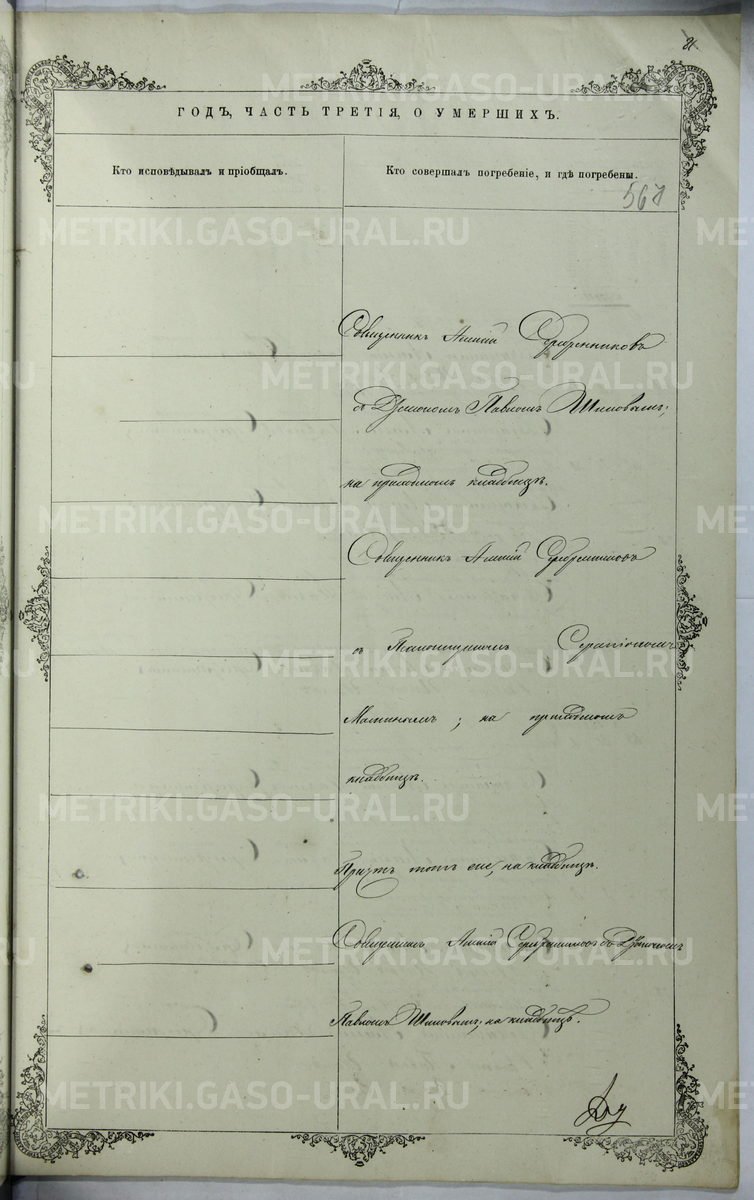 ГОДЪ, ЧАСТЬ ТРЕТІЯ, О УМЕРШИХЪ.
Кто исповѣдывалъ и пріобщалъ.
Кто совершалъ погребеніе, и гдѣ погребены.
567
Священникъ Алексій Серебренниковъ
съ Діакономъ Павломъ Шиловымъ;
на приходскомъ кладбищѣ.
Священникъ Алексій Серебренниковъ
съ Псаломщикомъ Серапіономъ
; на приходскомъ
кладбищѣ.
Причтъ тотъ же, на кладбищѣ.
Священникъ Алексій Серебренниковъ съ Діакономъ
Павломъ Шиловымъ; на кладбищѣ.
METRIKI.GASO-URAL.RU